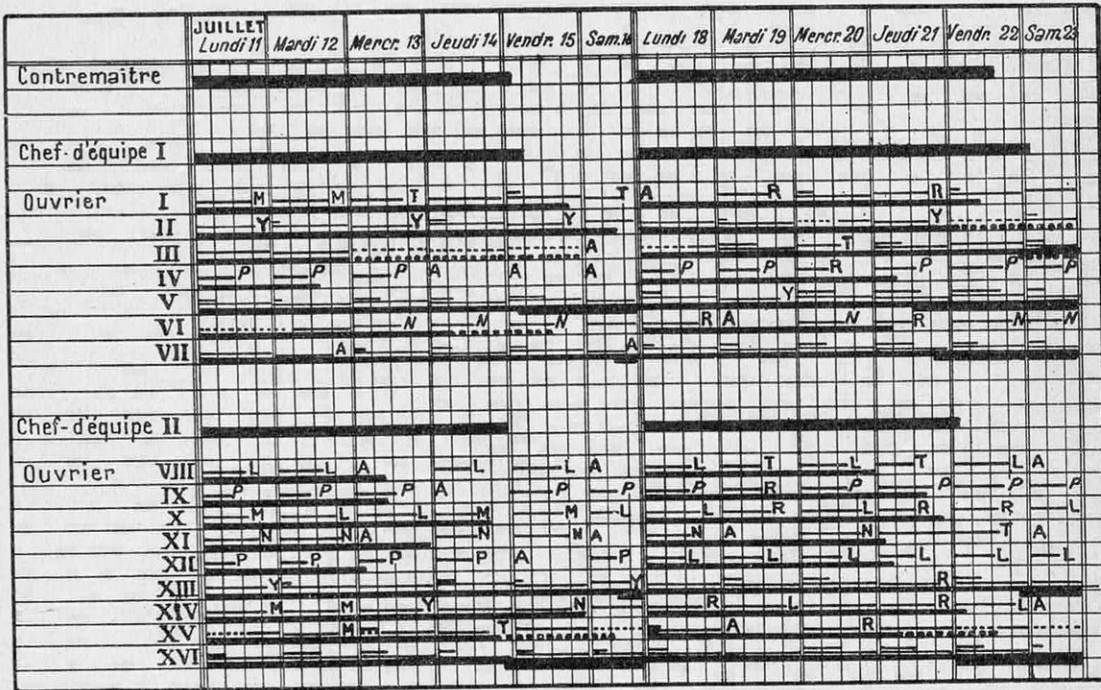 JUILLET
Lundi 11 Mardi 12 Mercr. 13 Jeudi 14 Vendr. 15 Sam. 16 Lundi 18 Mardi 19 Mercr. 20 Jeudi 21 Vendr. 22 Sam. 23
Contremaitre
Chef-d'équipe I
Ouvrier I M M T T A R R
II Y Y Y Y
III A T
IV P P P A A A P P R P P P
V Y
VI N N N R A N R N N
VII A A
Chef-d'équipe II
Ouvrier VIII L L A L L A L T L T L A
IX P P P A P P P R P P P P
X M L L M M L L R L R R L
XI N N A N N A N A N L T A
XII P P P P A P L L L L L L
XIII Y Y R
XIV M M Y N R L R L A
XV M T A R
XVI